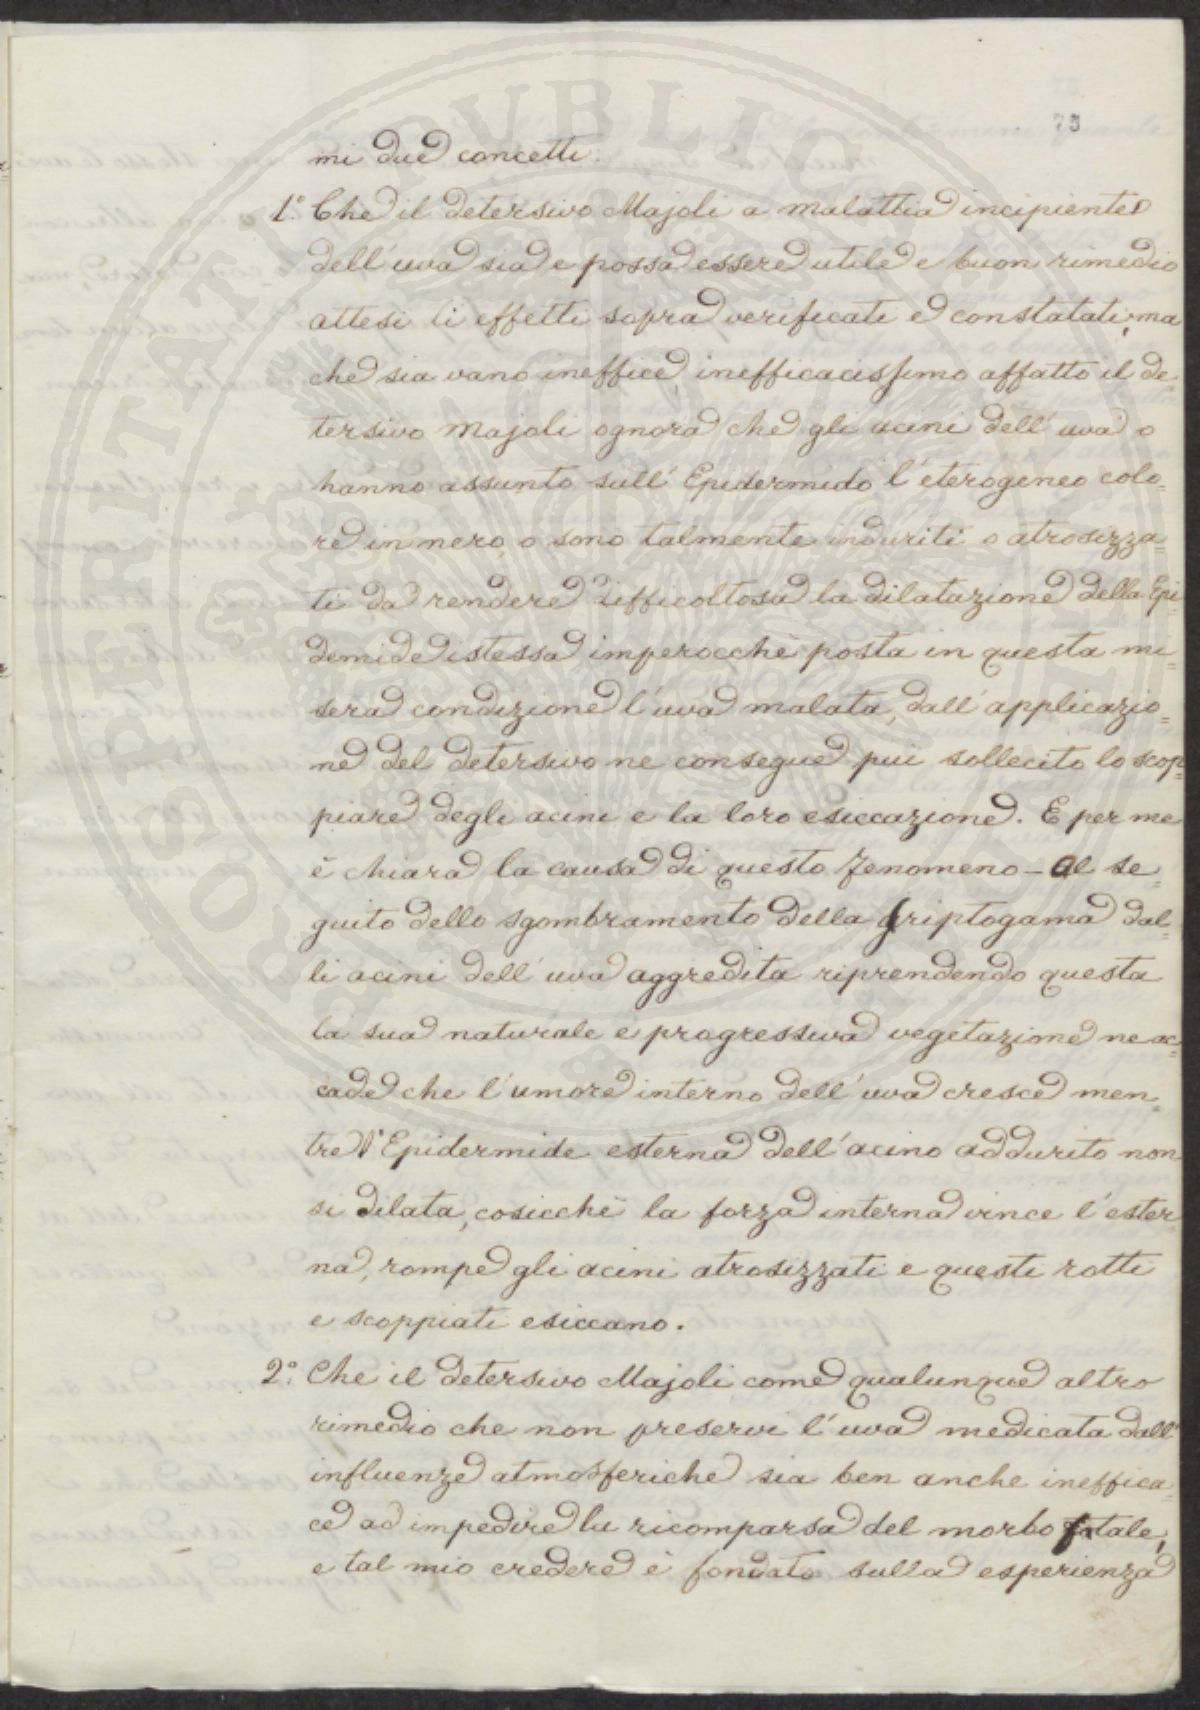 75
mi due concetti.
1.° Che il detersivo Majoli a malattia incipiente
dell'uva sia e possa essere utile e buon rimedio
attesi li effetti sopra verificati e constatati; ma
che sia vano inefficè, inefficacissimo affatto il de=
tersivo Majoli ognora che gli acini dell'uva o
hanno assunto sull'Epidermide l'eterogeneo colo=
re in mero o sono talmente induriti o atrosizza=
ti da rendere difficoltosa la dilatazione della Epi=
demide istessa imperocchè posta in questa mi=
sera condizione l'uva malata, dall'applicazio=
ne del detersivo ne consegue pui sollecito lo scop=
piare degli acini e la loro esiccazione. E per me
è chiara la causa di questo fenomeno - al se=
guito dello sgombramento della criptogama dal=
li acini dell'uva aggredita riprendendo questa
la sua naturale e progressiva vegetazione ne ac=
cade che l'umore interno dell'uva cresce men=
tre l'Epidermide esterna dell'acino addurito non
si dilata, cosicchè la forza interna vince l'ester=
na, rompe gli acini atrosizzati e questi rotti
e scoppiati esiccano.
2.° Che il detersivo Majoli come qualunque altro
rimedio che non preservi l'uva medicata dall'
influenze atmosferiche sia ben anche ineffica=
ce ad impedire la ricomparsa del morbo fatale,
e tal mio credere è fondato sulla esperienza
PROSPERITATI PVBLICAE